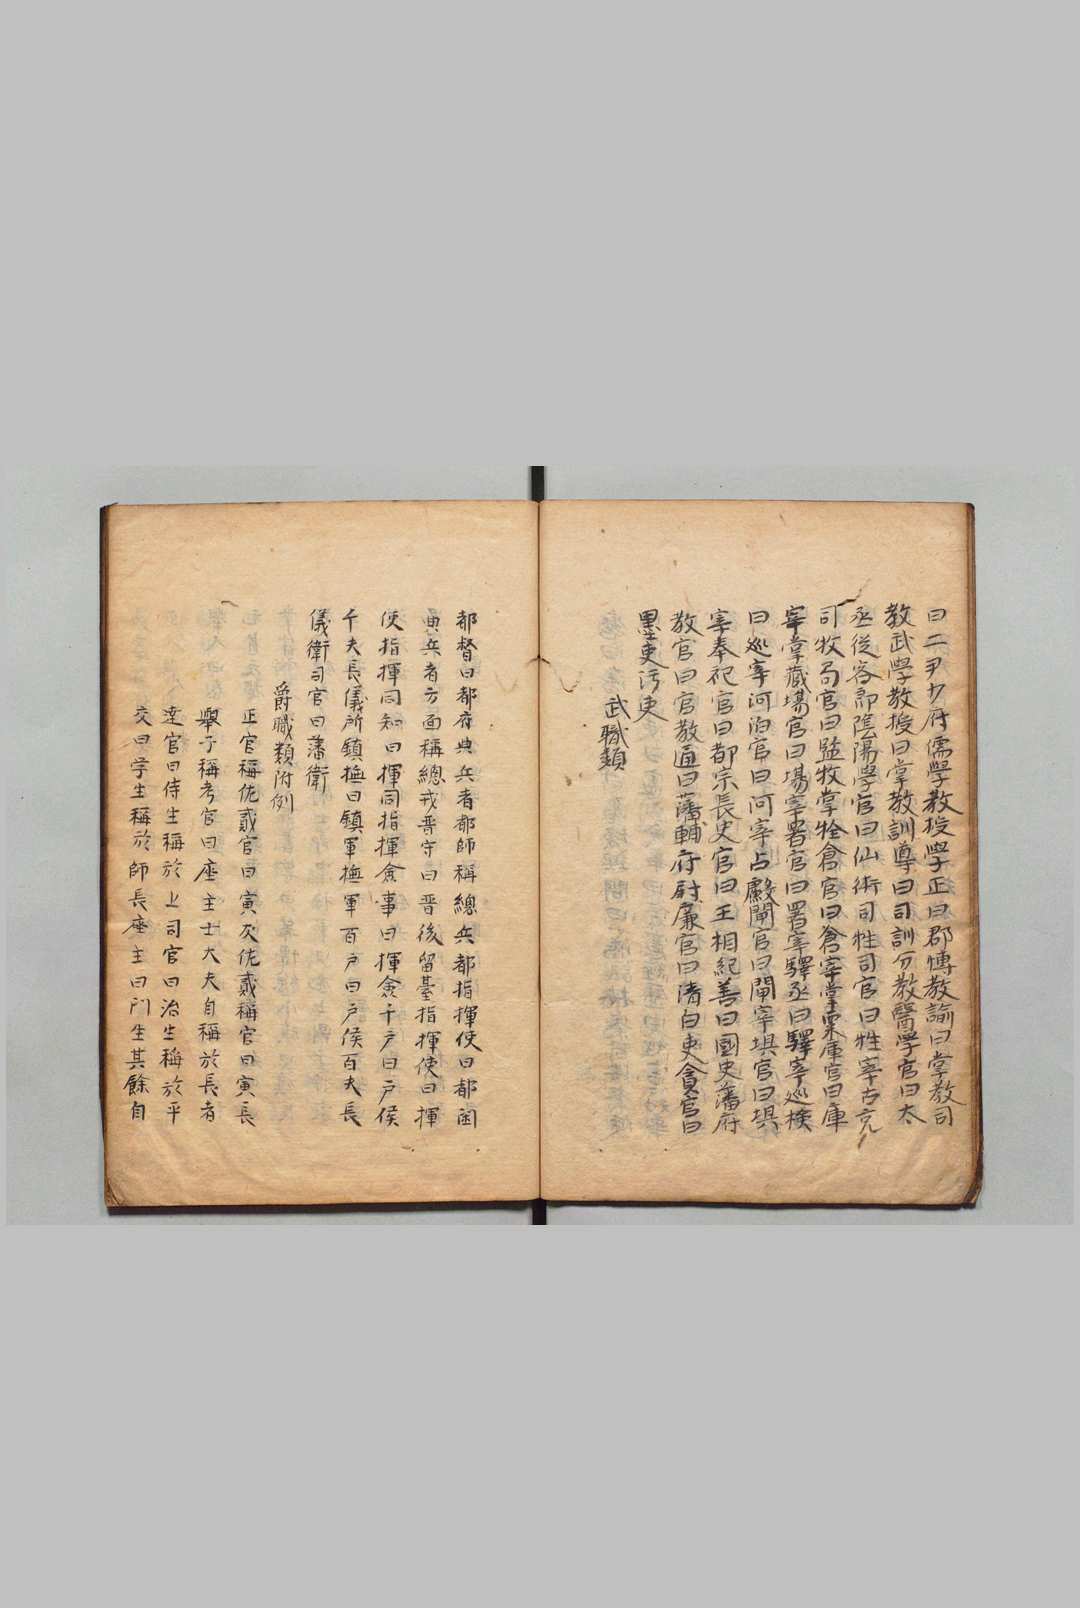 曰二尹少府儒學教授學正曰郡慱教諭曰掌教司
教武學教授曰掌教訓導曰司訓分教醫學官曰太
丞從容郎陰陽學官曰仙術司牲司官曰牲宰古克
司牧局官曰監牧掌牲倉官曰倉宰掌粟庫官曰庫
宰掌蔵場官曰場宰署官曰署宰驛丞曰驛宰巡検
曰巡宰河泊官曰河宰占毆閘官曰閘宰埧官曰埧
宰奉祀官曰都宗長史官曰王相紀善曰國史藩府
教官曰官教通曰藩輔府尉廉官曰清白吏貪官曰
墨吏污吏
武職類
都督曰都府典兵者都師稱總兵都指揮使曰都閫
員兵者方面稱總戎晋守曰晋後留臺指揮使曰揮
使指揮同知曰揮同指揮僉事曰揮僉千戶曰戶侯
千夫長儀所鎮撫曰鎮軍撫軍百戶曰戶侯百夫長
儀衛司官曰藩衛
爵職類附例
正官稱佐貳官曰寅次佐貳稱官曰寅長
舉子稱考官曰座主士大夫自稱於長者
達官曰侍生稱於上司官曰治生稱於平
交曰学生稱於師長座主曰门生其餘自